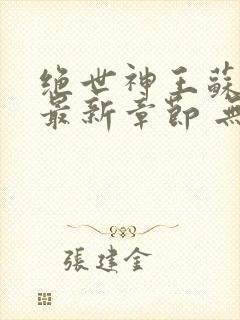 絕世神王蘇
最新章節 無
張建金